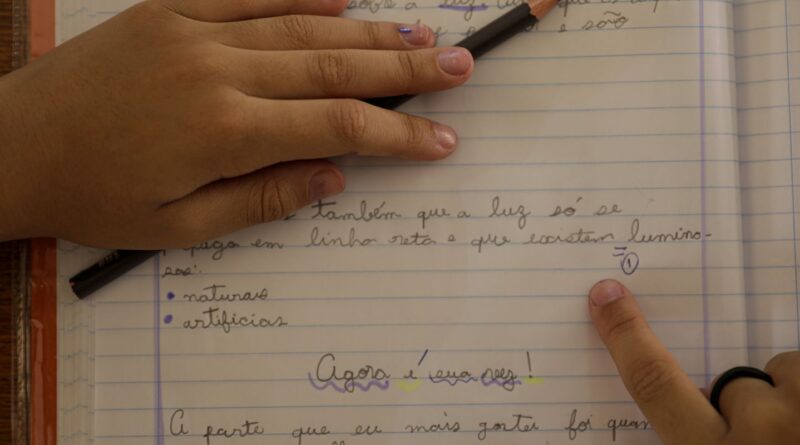 sobre a luz
e são
também que a luz só se
em linha reta e que existem lumino-
sos:
• naturais
• artificias
①
Agora é sua vez!
A parte que eu mais gostei foi quan